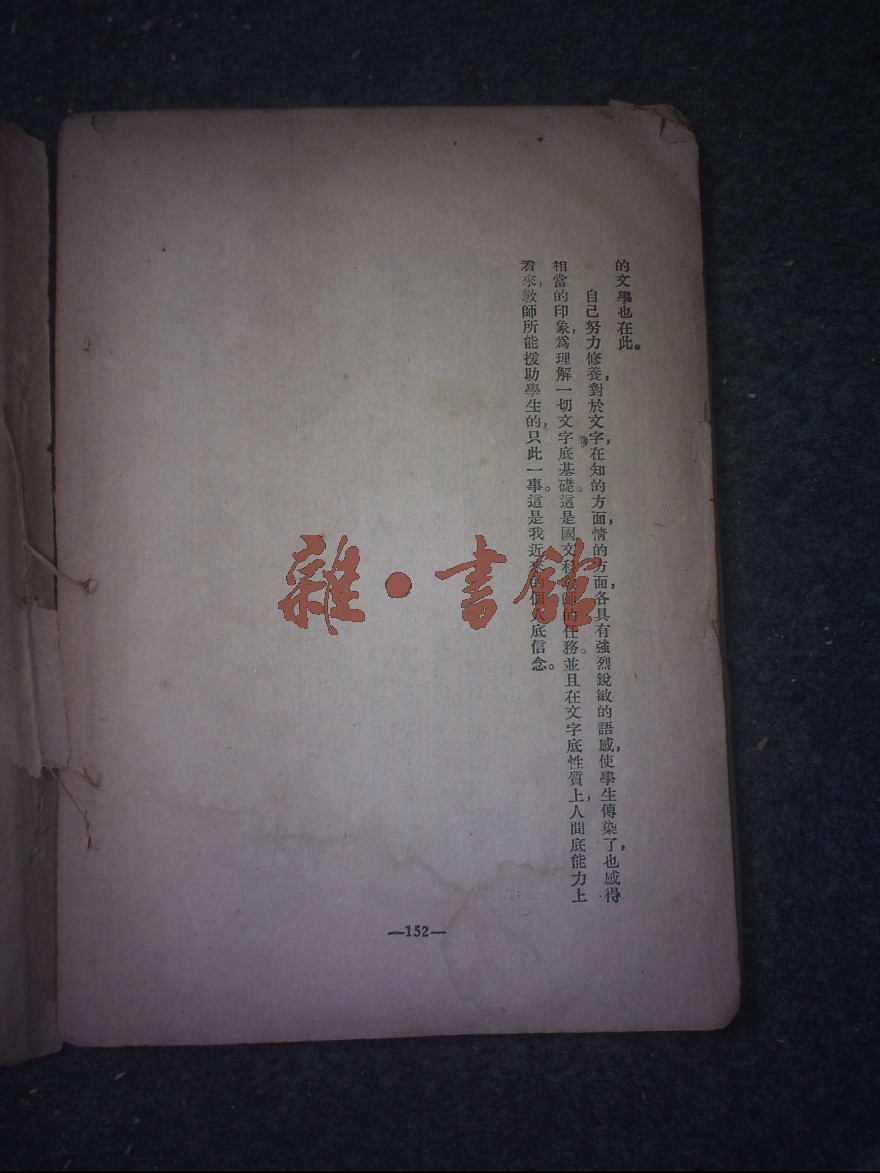 的文學也在此。
自己努力修養，對於文字，在知的方面，情的方面，各具有強烈銳敏的語感，使學生傳染了，也感得
相當的印象，爲理解一切文字底基礎。這是國文科教師的任務。並且在文字底性質上，人間底能力上
看來，教師所能援助學生的，只此一事。這是我近來的個人底信念。
—152—
雜·書館